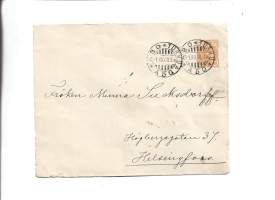 Fröken Minna Sucksdorff
Högbergsgatan 37
Helsingfors